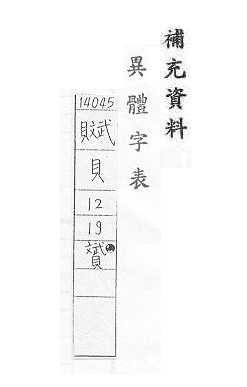 補充資料
異體字表
14045
貝
12
19
贇